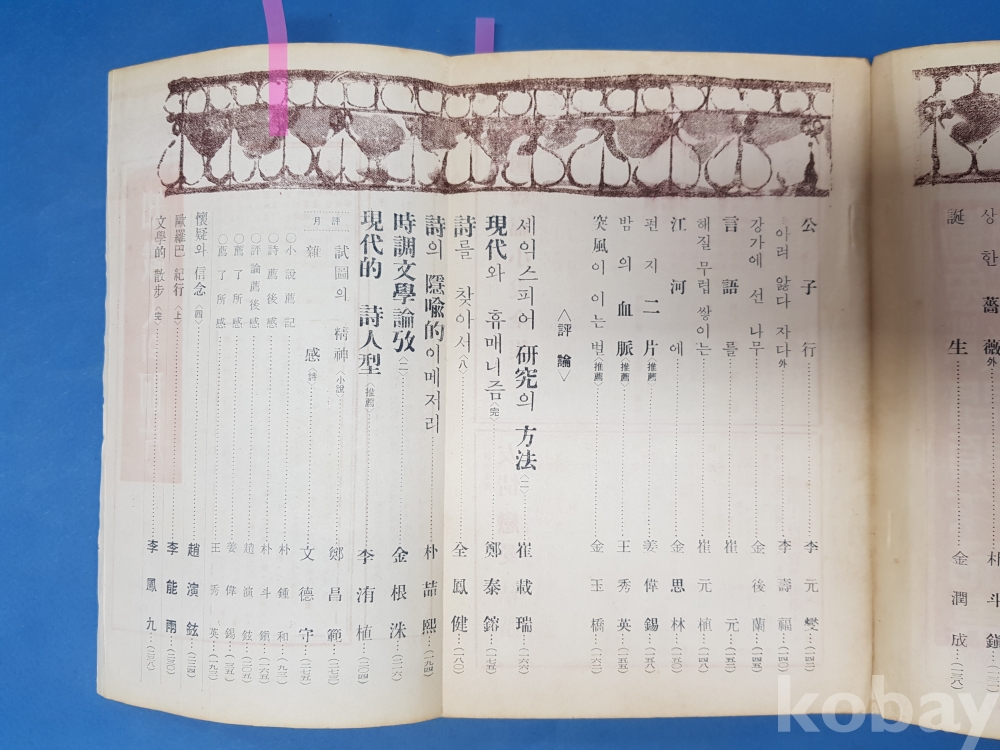 상한 薔薇 外 朴斗鎭
誕生 金潤成 (一三八)
公子行 李元燮 (一四二)
아려 앓다 자다 外 李壽福 (一四五)
강가에 선 나무 金後蘭 (一四五)
言語를 崔元 (一五二)
해질 무렵 쌓이는 崔元植 (一四八)
江河에 金思林 (一五〇)
편지 二片 (推薦) 姜偉錫 (一五五)
밤의 血脈 (推薦) 王秀英 (一五五)
突風이 이는 벌 (推薦) 金玉橋 (一六二)
<評論>
셰익스피어 研究의 方法 (二) 崔載瑞 (一六六)
現代와 휴매니즘 (完) 鄭泰鎔 (一七五)
詩를 찾아서 (八) 全鳳健 (一八〇)
詩의 隱喩的 이메저리 朴喆熙 (一九四)
時調文學論攷 (一) 金根洙 (二一六)
現代的 詩人型 (推薦) 李洧植 (二〇四)
月評
試圖의 精神 (小說) 鄭昌範
雜感 (詩) 文德守 (二三五)
○小說薦記 朴鍾和 (一九三)
○詩薦後感 朴斗鎭 (一五七)
○評論薦後感 趙演鉉 (二一五)
○薦了所感 姜偉錫 (一五五)
○薦了所感 王秀英 (一九三)
懷疑와 信念 (四) 趙演鉉 (二三四)
歐羅巴 紀行 (上) 李能雨 (二三〇)
文學的 散步 (完) 李鳳九 (二六八)
kobay